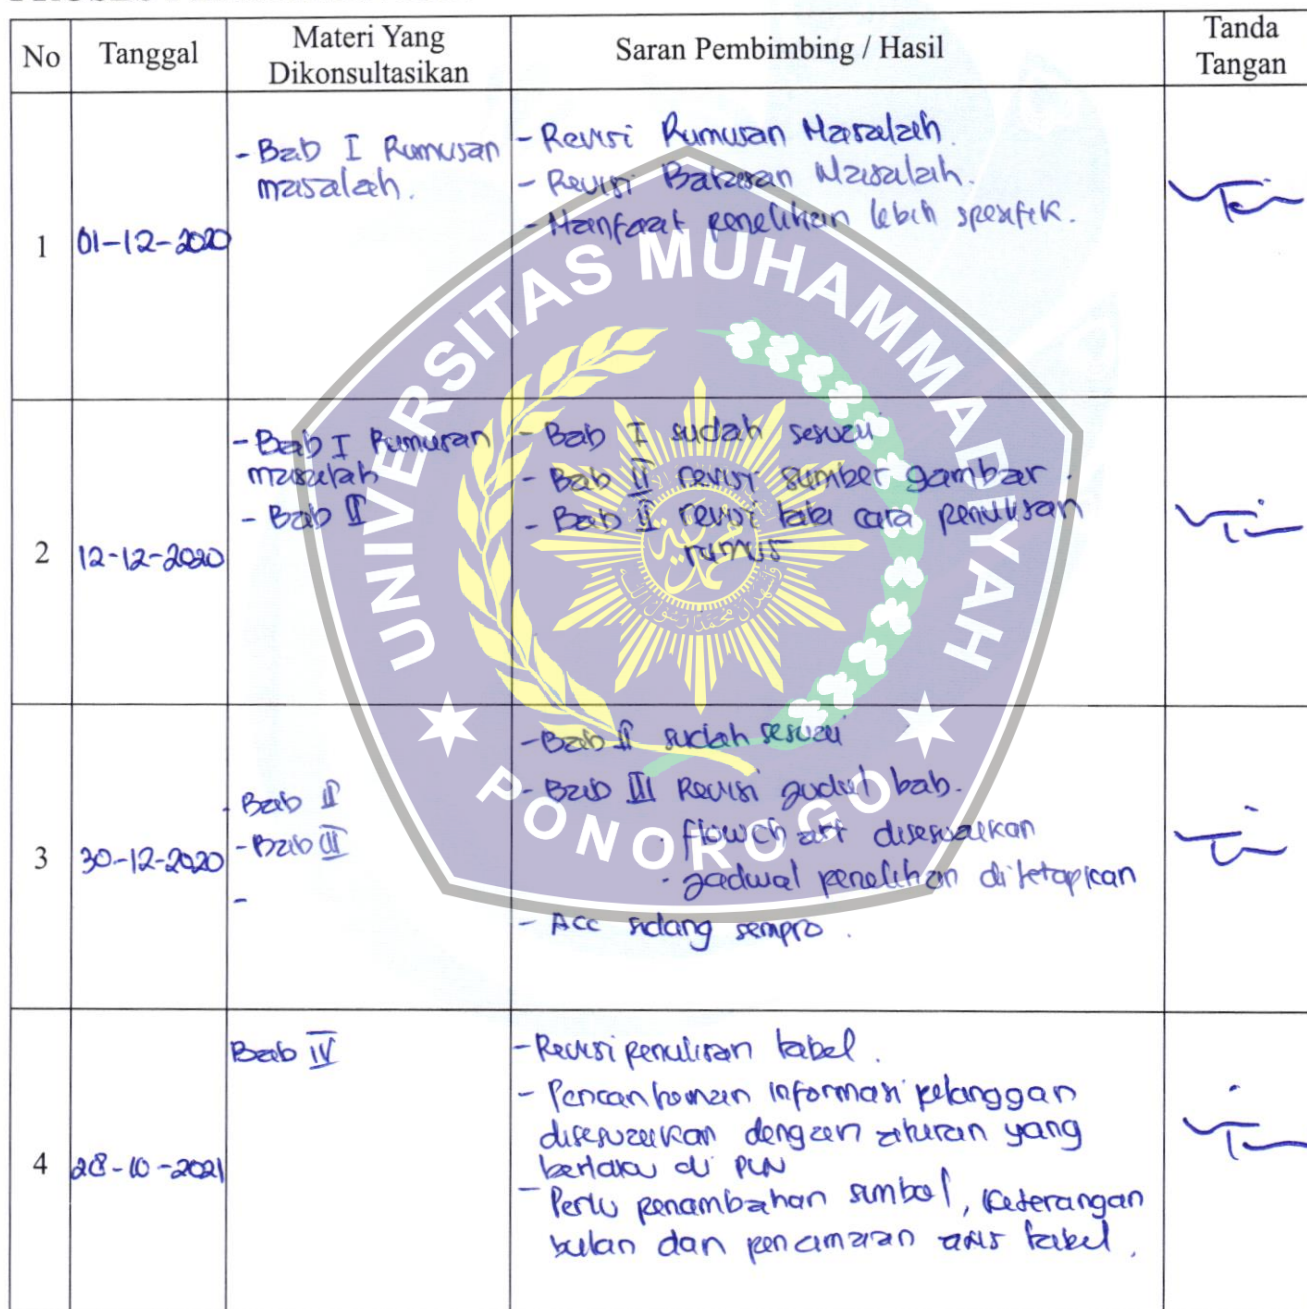 No
Tanggal
Materi Yang
Dikonsultasikan
Saran Pembimbing / Hasil
Tanda
Tangan
1
01-12-2020
- Bab I Rumusan
masalah.
- Revisi Rumusan Masalah.
- Revisi Batasan Masalah.
- Manfaat penelitian lebih spesifik.
2
12-12-2020
- Bab I Rumusan
masalah
- Bab II
- Bab I sudah sesuai
- Bab II revisi sumber gambar.
- Bab II revisi tata cara penulisan
rumus
3
30-12-2020
- Bab II
- Bab III
-
- Bab II sudah sesuai
- Bab III Revisi judul bab.
. flowchart disesuaikan
. jadwal penelitian ditetapkan
- Acc sidang sempro.
4
28-10-2021
Bab IV
- Revisi penulisan tabel.
- Pencantuman informasi pelanggan
disesuaikan dengan aturan yang
berlaku di PLN
- Perlu penambahan simbol, Keterangan
bulan dan tabel.
UNIVERSITAS MUHAMMADIYAH
PONOROGO